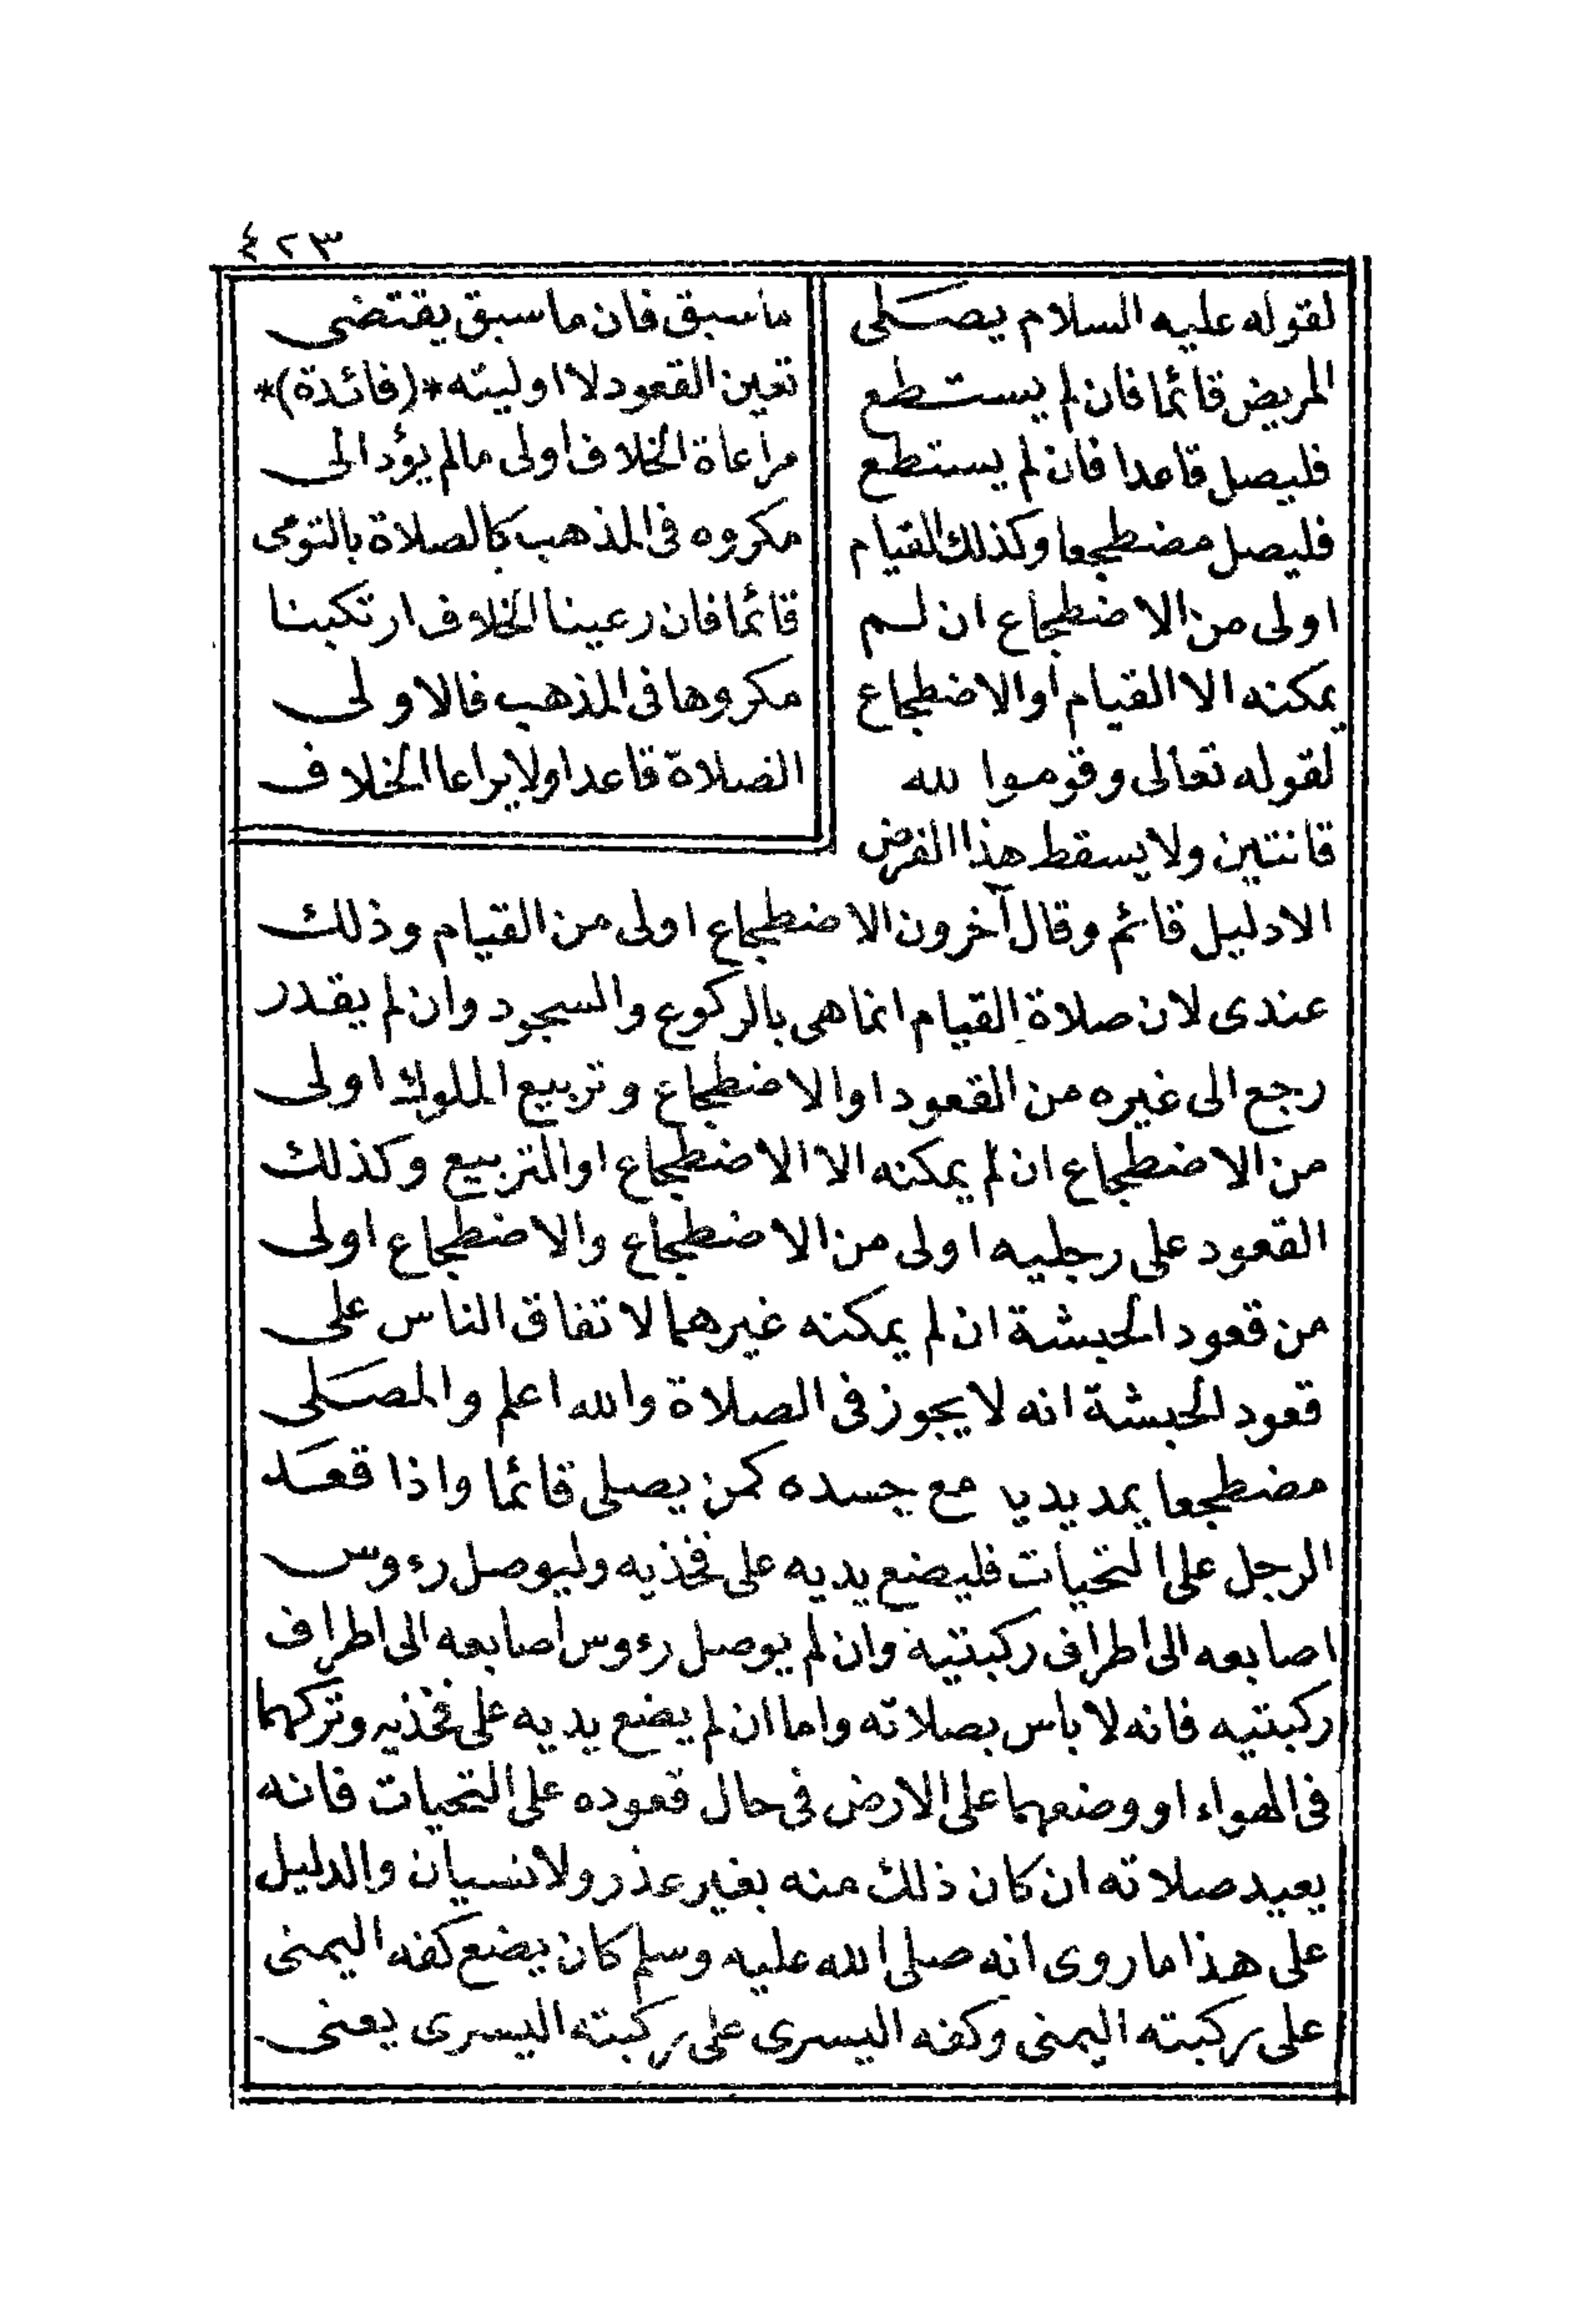 ٤٢٣
لقوله عليه السلام يصلى
المريض قائما فان لم يستطع
فليصل قاعدا فان لم يستطع
فليصل مضطجعا وكذلك القيام
اولى من الاضطجاع ان لم
يمكنه الا القيام او الاضطجاع
لقوله تعالى وقوموا لله
قانتين ولا يسقط هذا الفرض
ما سبق فان ما سبق يقتضى
تعين القعود لا اوليته *(فائدة)*
مراعاة الخلاف اولى مالم يؤد الى
مكروه فى المذهب كالصلاة بالتومى
قائما فان رعينا الخلاف ارتكبنا
مكروها فى المذهب فالاولى
الصلاة قاعدا ولا يراعا الخلاف
الا دليل قائم وقال آخرون الاضطجاع اولى من القيام وذلك
عندى لان صلاة القيام انما هى بالركوع والسجود وان لم يقدر
رجع الى غيره من القعود او الاضطجاع وتربيع الملوك اولى
من الاضطجاع ان لم يمكنه الا الاضطجاع او التربيع وكذلك
القعود على رجليه اولى من الاضطجاع والاضطجاع اولى
من قعود الحبشة ان لم يمكنه غيرهما لاتفاق الناس على
قعود الحبشة انه لا يجوز فى الصلاة والله اعلم والمصلى
مضطجعا يمد يديه مع جسده كمن يصلى قائما واذا قعد
الرجل على التحيات فليضع يديه على فخذيه وليوصل رءوس
اصابعه الى اطراف ركبتيه وان لم يوصل رءوس اصابعه الى اطراف
ركبتيه فانه لا باس بصلاته واما ان لم يضع يديه على فخذيه وتركهما
فى الهواء او وضعهما على الارض فى حال قعوده على التحيات فانه
يعيد صلاته ان كان ذلك منه بغير عذر ولا نسيان والدليل
على هذا ما روى انه صلى الله عليه وسلم كان يضع كفه اليمنى
على ركبته اليمنى وكفه اليسرى على ركبته اليسرى يعنى